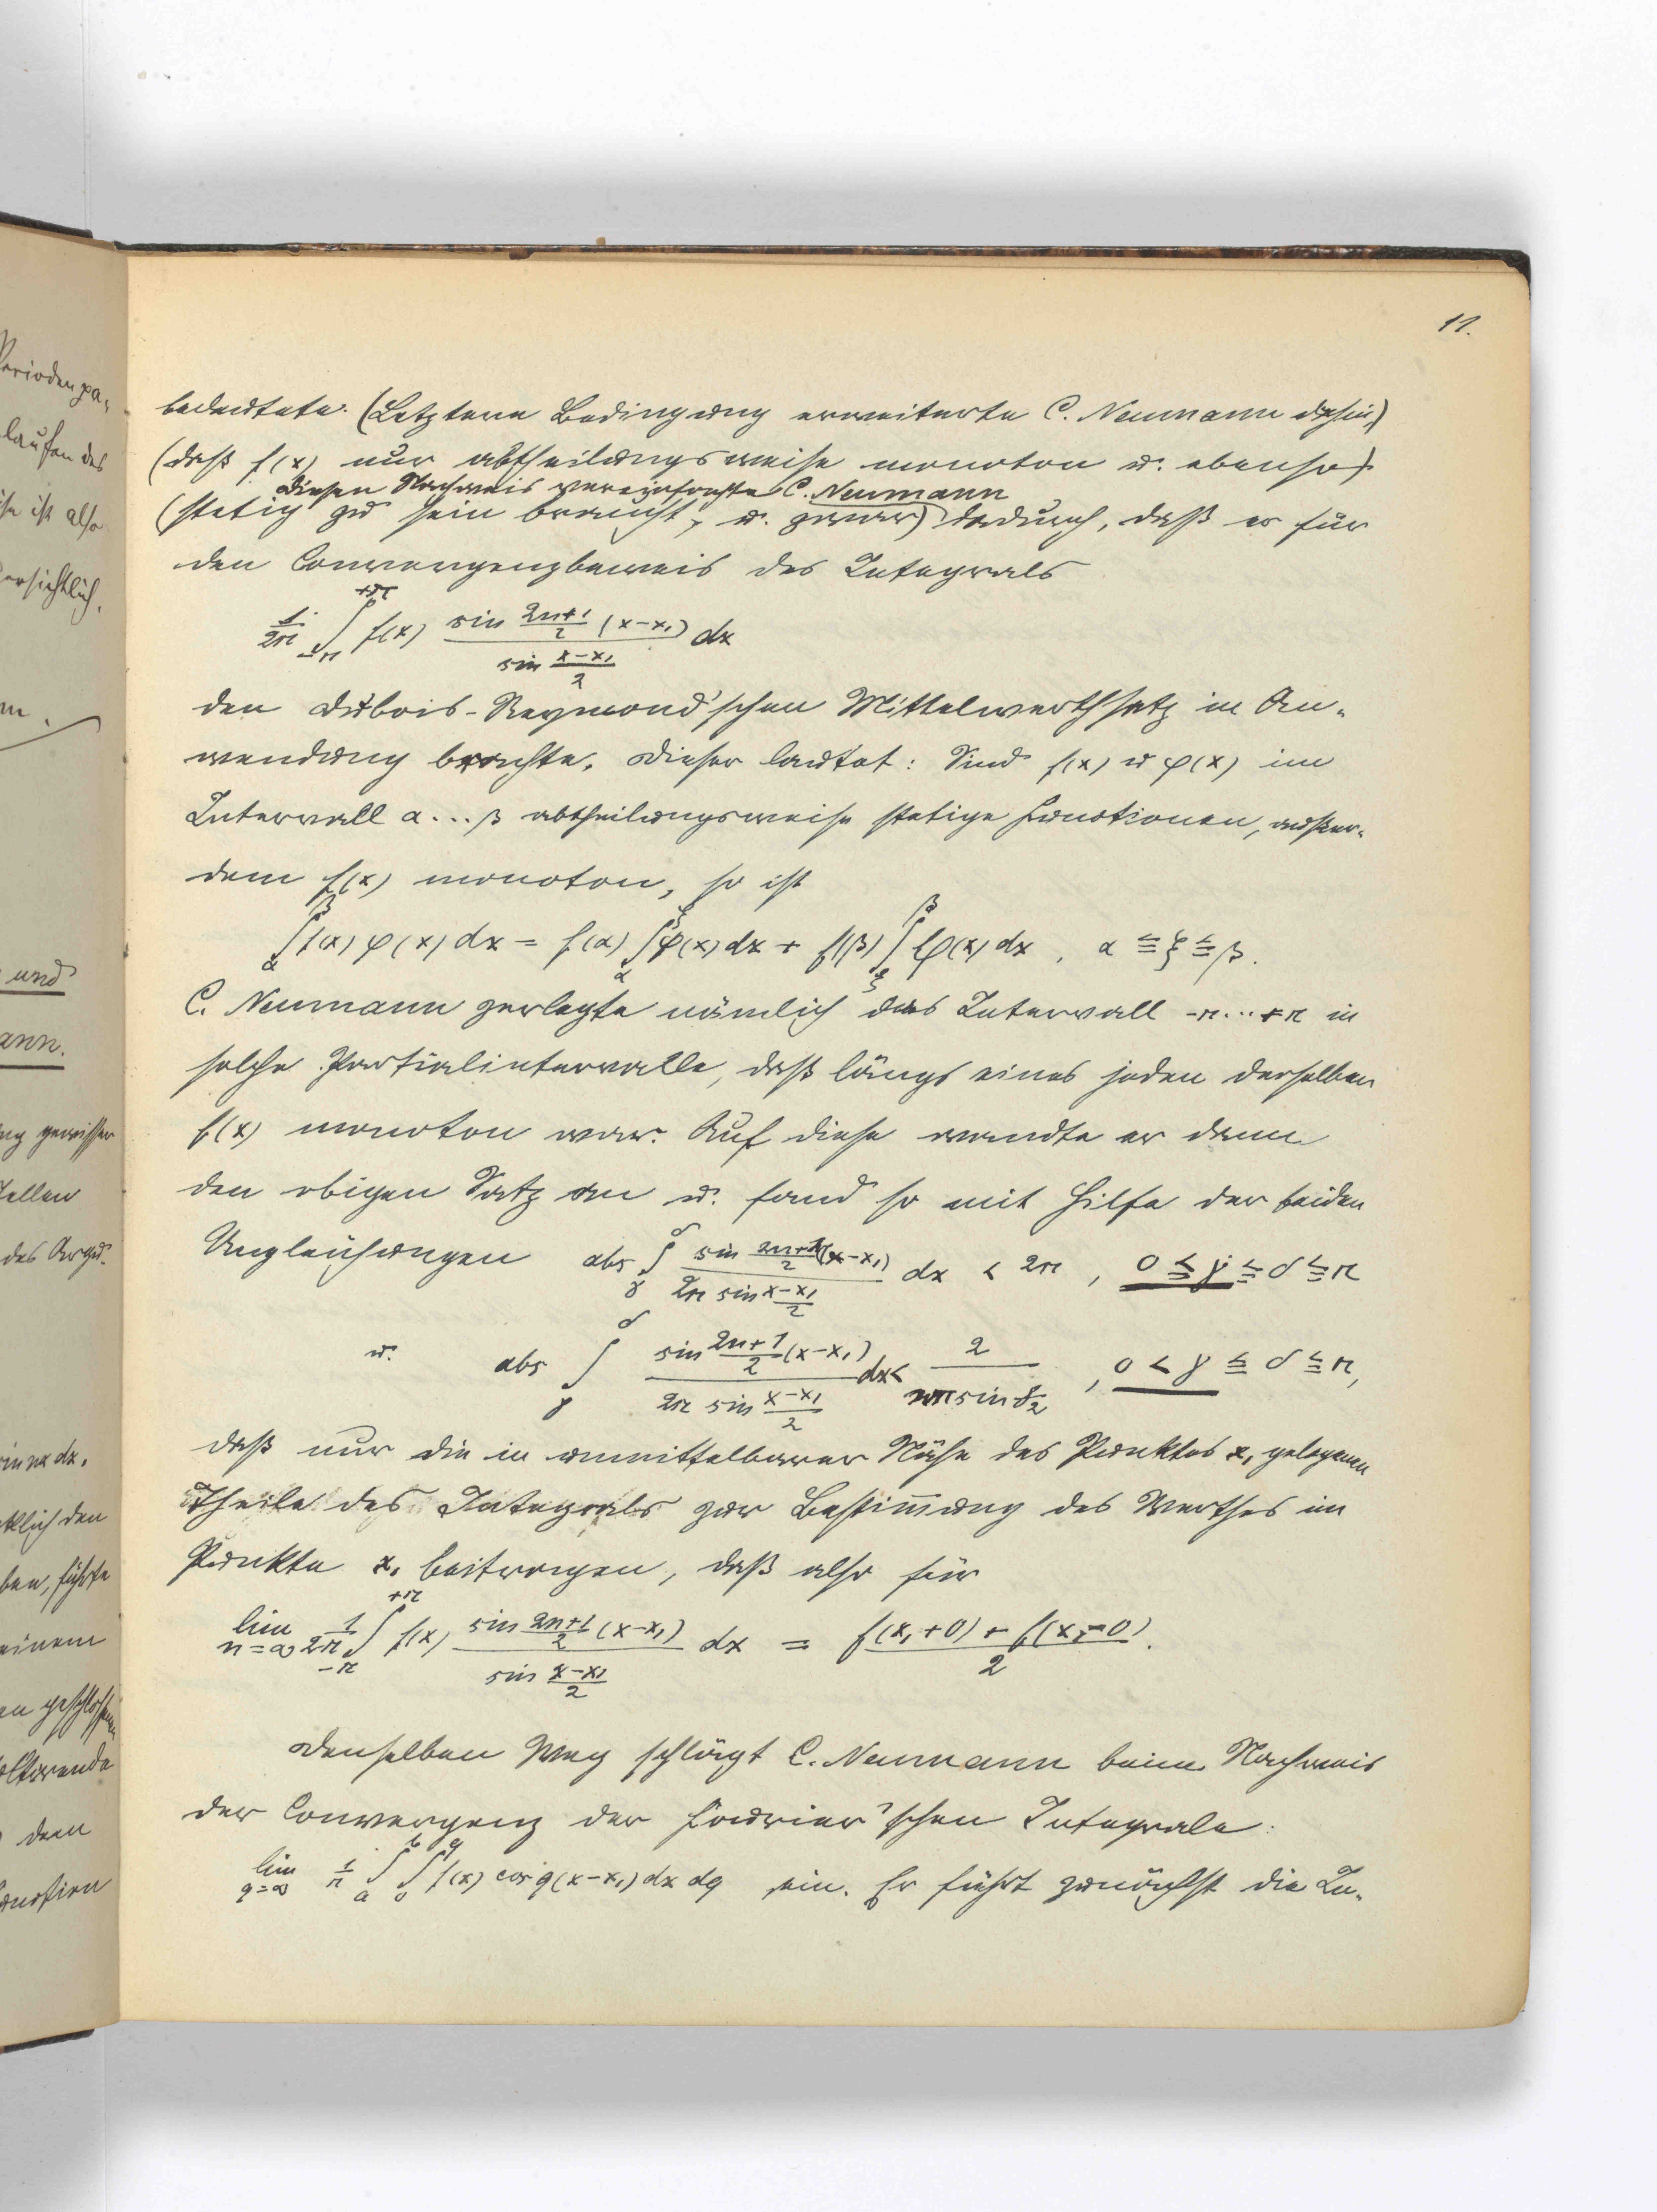 11.
bedeutete. (Letztere Bedingung erweiterte C. Neumann dahin,)
(daß f(x) nur abtheilungsweise monoton u. ebenso)
Diesen Nachweis vereinfachte C. Neumann
(stetig zu sein braucht, u. zwar) dadurch, daß er für
den Convergenzbeweis des Integrals
1/2π ∫_{-π}^{+π} f(x) sin (2n+1)/2 (x-x₁) / sin (x-x₁)/2 dx
den Dubois-Reymond'schen Mittelwerthsatz in An-
wendung brachte. Dieser lautet: Sind f(x) u φ(x) im
Intervall α...β abtheilungsweise stetige Functionen, außer-
dem f(x) monoton, so ist
∫_α^β f(x) φ(x) dx = f(α) ∫_α^ξ φ(x) dx + f(β) ∫_ξ^β φ(x) dx , α ≦ ξ ≦ β.
C. Neumann zerlegte nämlich das Intervall -π...+π in
solche Partialintervalle, daß längs eines jeden derselben
f(x) monoton war. Auf diese wandte er dann
den obigen Satz an u. fand so mit Hilfe der beiden
Ungleichungen abs ∫_γ^δ sin (2n+1)/2 (x-x₁) / 2π sin (x-x₁)/2 dx < 2π , 0 ≦ γ ≦ δ ≦ π
u. abs ∫_γ^δ sin (2n+1)/2 (x-x₁) / 2π sin (x-x₁)/2 dx < 2 / nπ sin γ/2 , 0 < γ ≦ δ ≦ π,
daß nur die in unmittelbarer Nähe des Punktes x₁ gelegenen
Theile des Integrals zur Bestim̄ung des Werthes im
Punkte x₁ beitragen, daß also für
lim n=∞ 1/2π ∫_{-π}^{+π} f(x) sin (2n+1)/2 (x-x₁) / sin (x-x₁)/2 dx = f(x₁+0) + f(x₁-0) / 2.
Denselben Weg schlägt C. Neumann beim Nachweis
der Convergenz der Fourier'schen Integrale:
lim q=∞ 1/π ∫_a^b ∫_0^q f(x) cos q(x-x₁) dx dq ein. Er führt zunächst die In-